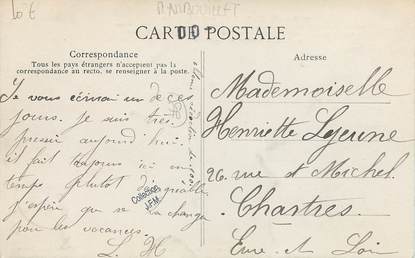 10 €
RAMBOUILLET
CARTE POSTALE
Correspondance
Tous les pays étrangers n'acceptent pas la
correspondance au recto, se renseigner à la poste.
Je vous écrirai un de ces
jours. Je suis très
pressée aujourd'hui.
il fait toujours ici un
temps plutôt désagréable
j'espère que ça changera
pour les vacances.
L. H
Collection
J.F.M.
Adresse
Mademoiselle
Henriette Lejeune
26 rue St Michel
Chartres
Eure et Loir